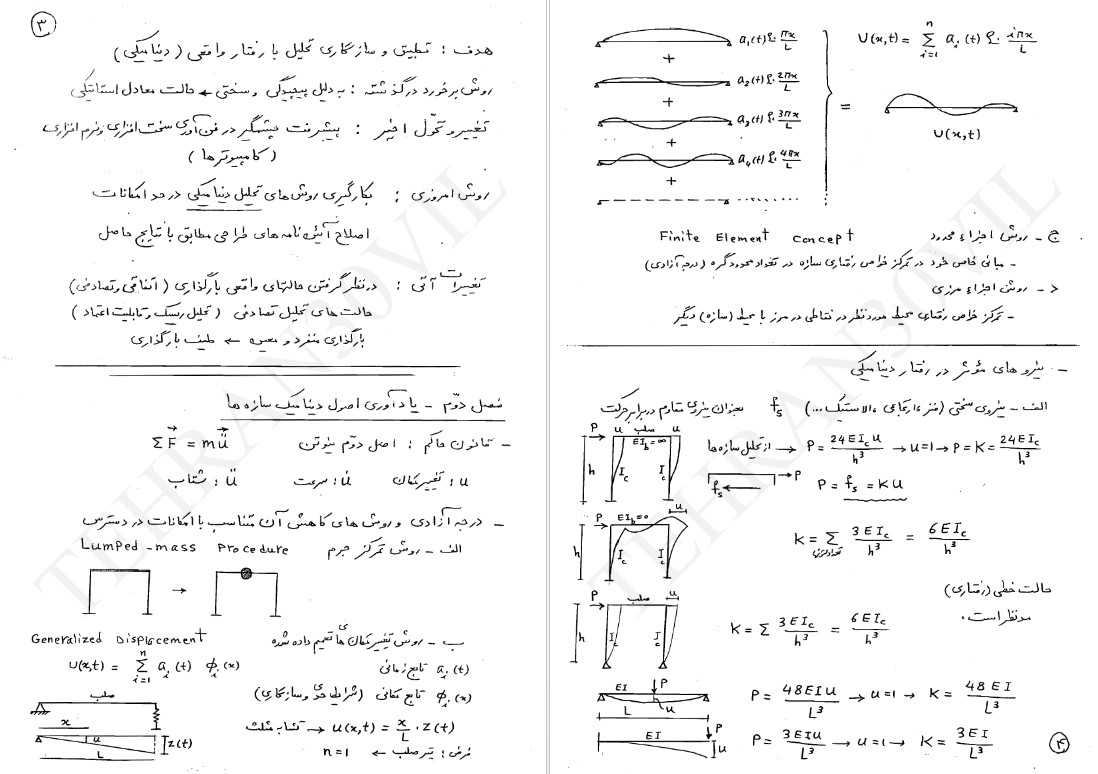 ۳
هدف : تطبیق و سازگاری تحلیل با رفتار واقعی ( دینامیکی )
روش برخورد در گذشته : به دلیل پیچیدگی و سختی ← حالت معادل استاتیکی
تغییر و تحوّل اخیر : پیشرفت چشمگیر در فن‌آوری سخت‌افزاری و نرم‌افزاری
( کامپیوترها )
روش امروزی : بکارگیری روش‌های تحلیل دینامیکی در حد امکانات
اصلاح آئین‌نامه‌های طراحی مطابق با نتایج حاصل
تغییرات آتی : در نظر گرفتن حالتهای واقعی بارگذاری ( اتفاقی و تصادفی )
حالت‌های تحلیل تصادفی ( تحلیل ریسک و قابلیت اعتماد )
بارگذاری منفرد و معین ← طیف بارگذاری
فصل دوّم - یادآوری اصول دینامیک سازه‌ها
- قانون حاکم : اصل دوّم نیوتن ΣF⃗ = mü⃗
u : تغییرمکان u̇ : سرعت ü : شتاب
- درجه آزادی و روش‌های کاهش آن متناسب با امکانات در دسترس
الف - روش تمرکز جرم Lumped-mass Procedure
ب - روش تغییرمکان‌های تعمیم داده شده Generalized Displacement
U(x,t) = Σ_{i=1}^{n} a_i(t) φ_i(x)
a_i(t) تابع زمانی
φ_i(x) تابع مکانی (شرایط حدّی و سازگاری)
صلب
x
u
L
z(t)
تشابه مثلث → u(x,t) = x/L . z(t)
فرض : تیر صلب ← n=1
a₁(t) Sin πx/L
+
a₂(t) Sin 2πx/L
+
a₃(t) Sin 3πx/L
+
a₄(t) Sin 4πx/L
+
........
=
U(x,t) = Σ_{i=1}^{n} a_i(t) Sin iπx/L
U(x,t)
ج - روش اجزاء محدود Finite Element Concept
- مبانی خاص خود در تمرکز خواص رفتاری سازه در تعداد محدود گره (درجه آزادی)
د - روش اجزاء مرزی
- تمرکز خواص رفتاری محیط مورد نظر در نقاطی در مرز با محیط (سازه) دیگر
- نیروهای مؤثر در رفتار دینامیکی
الف - نیروی سختی (فنر، ارتجاعی، الاستیک ...) f_s بعنوان نیروی مقاوم در برابر حرکت
P u صلب u
EI_b=∞
h I_c I_c
از تحلیل سازه‌ها → P = 24EI_c u/h³ → u=1 → P = K = 24EI_c/h³
f_s P
P = f_s = KU
P EI_b=0 u
h I_c I_c
K = Σ 3EI_c/h³ = 6EI_c/h³
تعداد ستونها
P صلب u
h I_c I_c
حالت خطی (رفتاری)
مد نظر است.
K = Σ 3EI_c/h³ = 6EI_c/h³
EI P u L
P = 48EIU/L³ → u=1 → K = 48EI/L³
EI P u
P = 3EIU/L³ → u=1 → K = 3EI/L³
۴
TEHRAN30VIL
TEHRAN30VIL